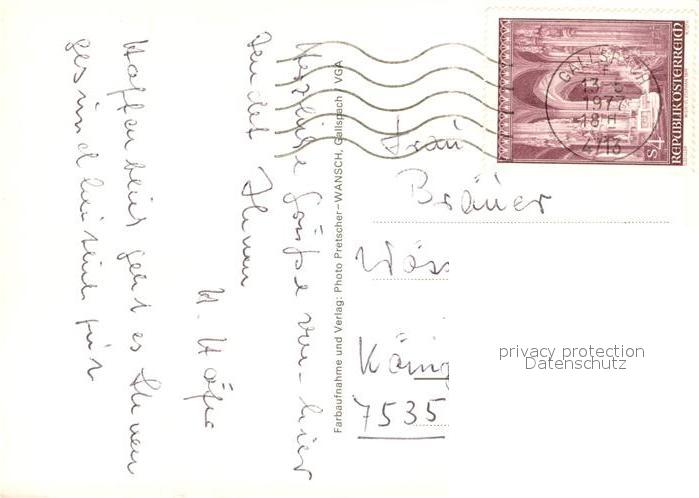 Herzliche Grüße von hier
sendet Ihnen
H.
Hoffentlich geht es Ihnen
gesundheitlich gut
Farbaufnahme und Verlag: Photo Pretscher-WANSCH, Gallspach VGA
GALLSPACH
13.-5
1977-18H
4713
S4
REPUBLIK ÖSTERREICH
Frau
Bräuer
7535
privacy protection
Datenschutz